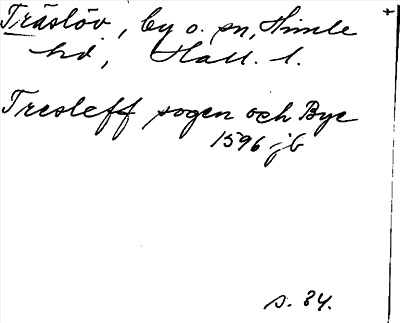 Träslöv, by o. sn, Himle
hd, Hall. l.
Tresleff sogen och Bye
1596 jb
s. 84.